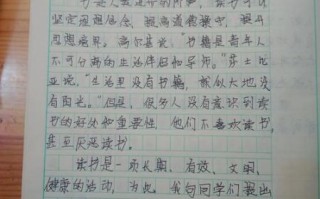 书是人类进步的阶梯，读书可以
坚定理想信念，提高道德情操，提升
思想境界。高尔基说："书籍是青年人
不可分离的生活伴侣和导师。"莎士比
亚说："生活里没有书籍，就似大地没
有阳光。"但是，很多人没有意识到读
书的好处和重要性，他们不喜欢读书，
甚至厌恶读书。
读书是一项长期、有效、文明、
健康的活动，为此，我向同学们提出